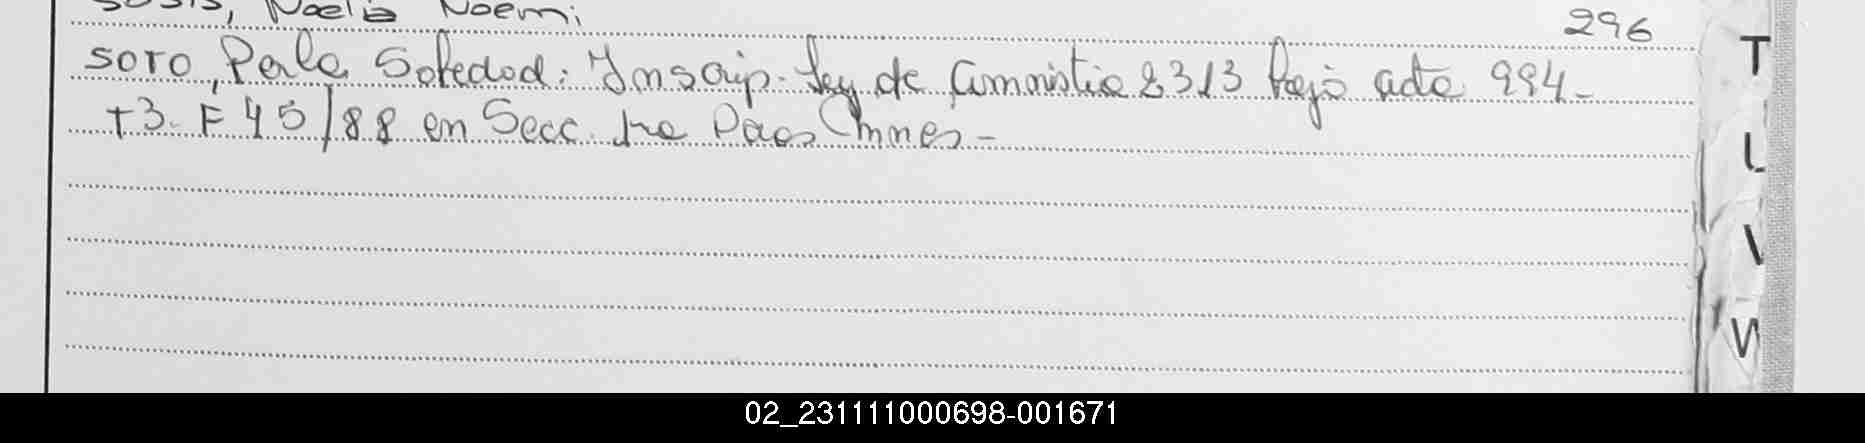 Sosis, Noelia Noemi 296
SOTO, Perla Soledad: Inscrip. Ley de Amnistia 2313 Bajo acta 994-
T3. F 45/88 en Secc. 1ra Paso
T
U
V
W
02_231111000698-001671